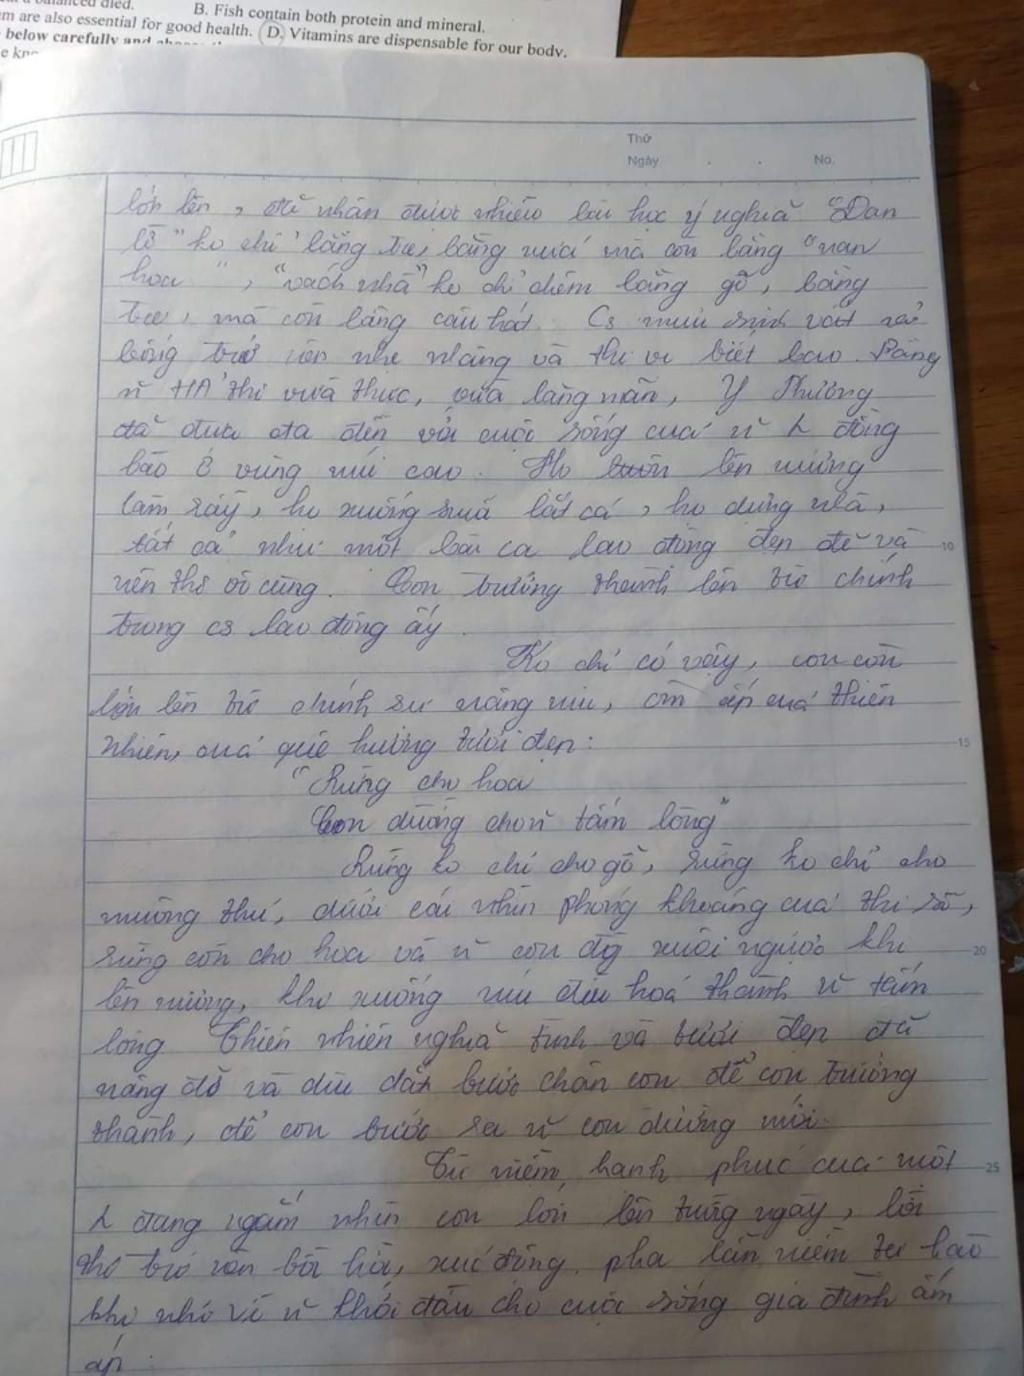 B. Fish contain both protein and mineral.
m are also essential for good health. D. Vitamins are dispensable for our body.
below carefully and
Thứ
Ngày . . No.
lớn lên, để nhận được nhiều bài học ý nghĩa "Đan
lờ" ko chỉ bằng tre, bằng nứa mà còn bằng "nan
hoa", "vách nhà" ko chỉ chêm bằng gỗ, bằng
tre, mà còn bằng câu hát. Cs mưu sinh vất vả
bỗng trở nên nhẹ nhàng và thi vị biết bao. Bằng
n~ HA thơ vừa thực, vừa lãng mạn, Y Phương
đã đưa ta đến với cuộc sống của n~ L đồng
bào ở vùng núi cao. Họ lên nương
làm rẫy, họ xuống suối bắt cá, họ dựng nhà,
tất cả như một bài ca lao động đẹp đẽ và 10
nên thơ vô cùng. Con trưởng thành lên từ chính
trong cs lao động ấy.
Ko chỉ có vậy, con còn
lớn lên từ chính sự nâng niu, ôm ấp của thiên
nhiên, của quê hương tươi đẹp: 15
"Rừng cho hoa
Con đường cho n~ tấm lòng"
Rừng ko chỉ cho gỗ, rừng ko chỉ cho
muông thú, dưới cái nhìn phóng khoáng của thi sĩ,
rừng còn cho hoa và n~ con đg xuôi ngược khi 20
lên nương, khi xuống núi đều hoá thành n~ tấm
lòng. Thiên nhiên nghĩa tình và tươi đẹp đã
nâng đỡ và dìu dắt bước chân con để con trưởng
thành, để con bước ra n~ con đường mới.
Từ niềm hạnh phúc của một 25
L đang ngắm nhìn con lớn lên từng ngày, lời
thơ trở nên bồi hồi, xúc động pha lẫn niềm tự hào
khi nhớ về n~ khởi đầu cho cuộc sống gia đình ấm
áp.